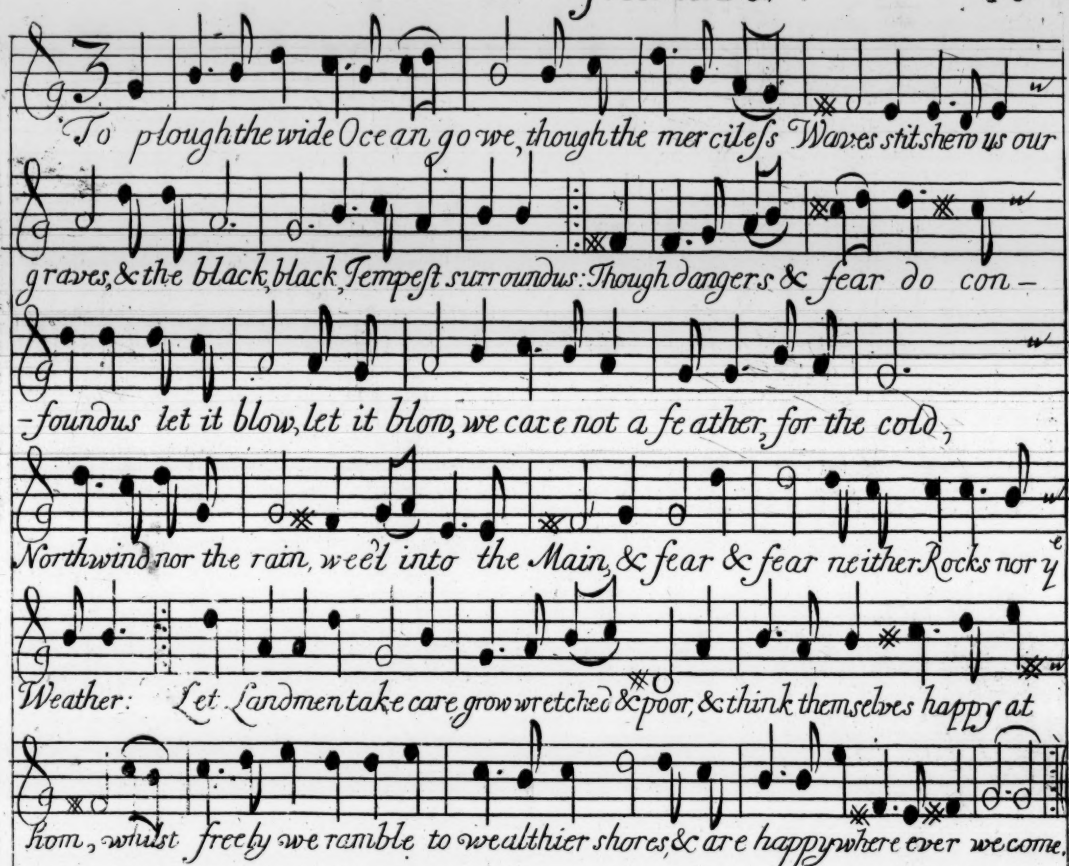 To plough the wide Ocean go we, though the merciless Waves stil shew us our
graves, & the black, black, Tempest surround us: Though dangers & fear do con-
-found us let it blow, let it blow, we care not a feather, for the cold,
Northwind nor the rain, wee'l into the Main, & fear & fear neither Rocks nor yᵉ
Weather: Let Landmen take care, grow wretched & poor, & think themselves happy at
hom, whilst freely we ramble to wealthier shores, & are happy where ever we come.